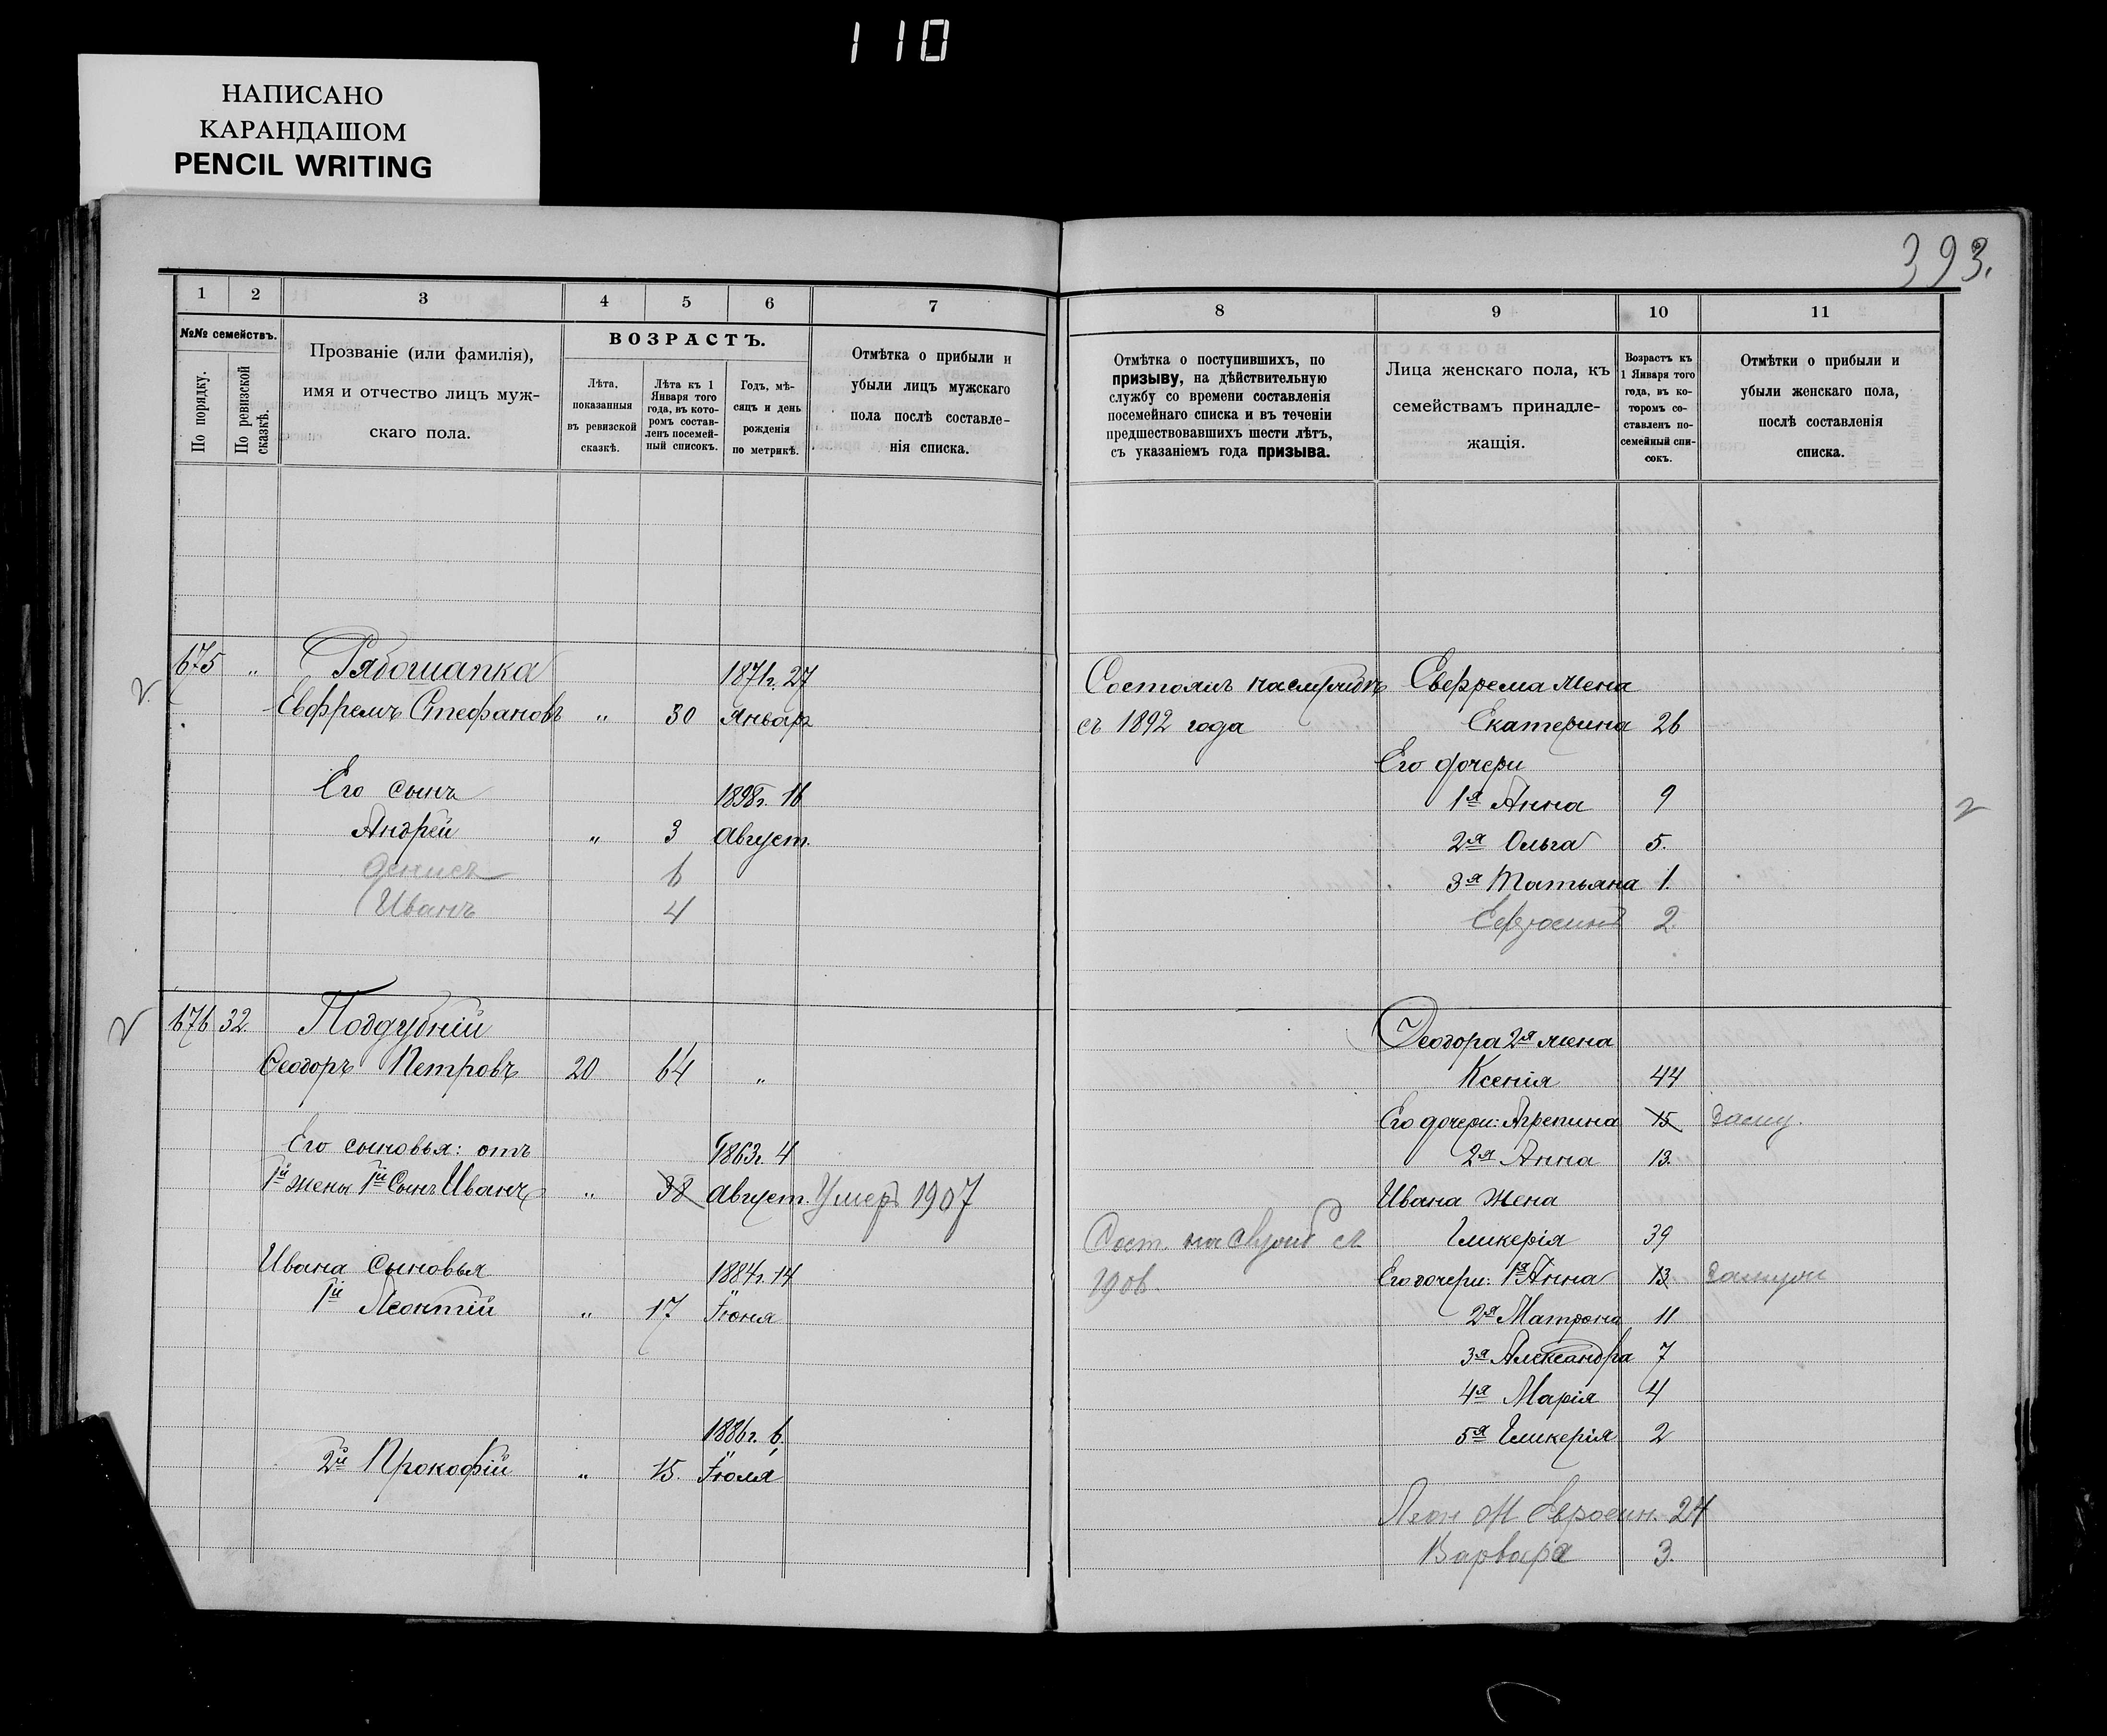 110
НАПИСАНО
КАРАНДАШОМ
PENCIL WRITING
393.
1 2 3 4 5 6 7
№№ семействъ.
По порядку.
По ревизской сказкѣ.
Прозваніе (или фамилія),
имя и отчество лицъ муж-
скаго пола.
ВОЗРАСТЪ.
Лѣта,
показанныя
въ ревизской
сказкѣ.
Лѣта къ 1
Января того
года, въ кото-
ромъ состав-
ленъ посемей-
ный списокъ.
Годъ, мѣ-
сяцъ и день
рожденія
по метрикѣ.
Отмѣтка о прибыли и
убыли лицъ мужскаго
пола послѣ составле-
нія списка.
675 „ Рябошапка 1871г. 27
Евфремъ Стефановъ „ 30 Январ
Его сынъ 1898г. 16
Андрей „ 3 Август.
Денисъ 6
Иванъ 4
676 32. Поддубній
Ѳеодоръ Петровъ 20 64 „
Его сыновья: отъ 1863г. 4
1й жены 1й Сынъ Иванъ „ 38 Август. Умеръ 1907
Ивана Сыновья 1884г. 14
1й Леонтій „ 17 Іюня
1886г. 6.
2й Прокофій „ 15. Іюля
8 9 10 11
Отмѣтка о поступившихъ, по
призыву, на дѣйствительную
службу со времени составленія
посемейнаго списка и въ теченіи
предшествовавшихъ шести лѣтъ,
съ указаніемъ года призыва.
Лица женскаго пола, къ
семействамъ принадле-
жащія.
Возрастъ къ
1 Января того
года, въ ко-
торомъ со-
ставленъ по-
семейный спи-
сокъ.
Отмѣтки о прибыли и
убыли женскаго пола,
послѣ составленія
списка.
Состоялъ на службѣ Евефрема жена
съ 1892 года Екатерина 26
Его дочери
1я Анна 9
2я Ольга 5.
3я Татьяна 1.
2
Ѳеодора 2я жена
Ксенія 44
Его дочери: Агрепина 15 Замуж.
2я Анна 13.
Ивана жена
Сост. на службѣ съ Гликерія 39
1906. Его дочери: 1я Анна 13 Замуже
2я Матрона 11
3я Александра 7
4я Марія 4
5я Гликерія 2
Леон. Ж Евросин. 24
Варвара 3.